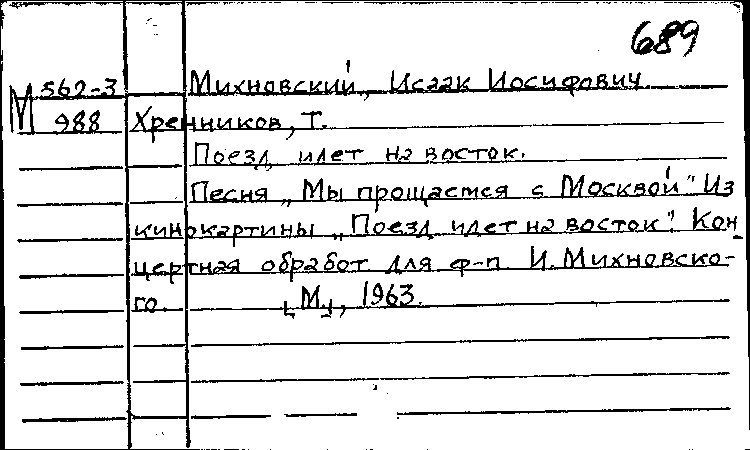 689
М 562-3 Михновский, Исаак Иосифович
988 Хренников, Т.
Поезд идет на восток.
Песня „Мы прощаемся с Москвой" Из
кинокартины „Поезд идет на восток". Кон
цертная обработ для ф-п И. Михновско-
го. [М.], 1963.